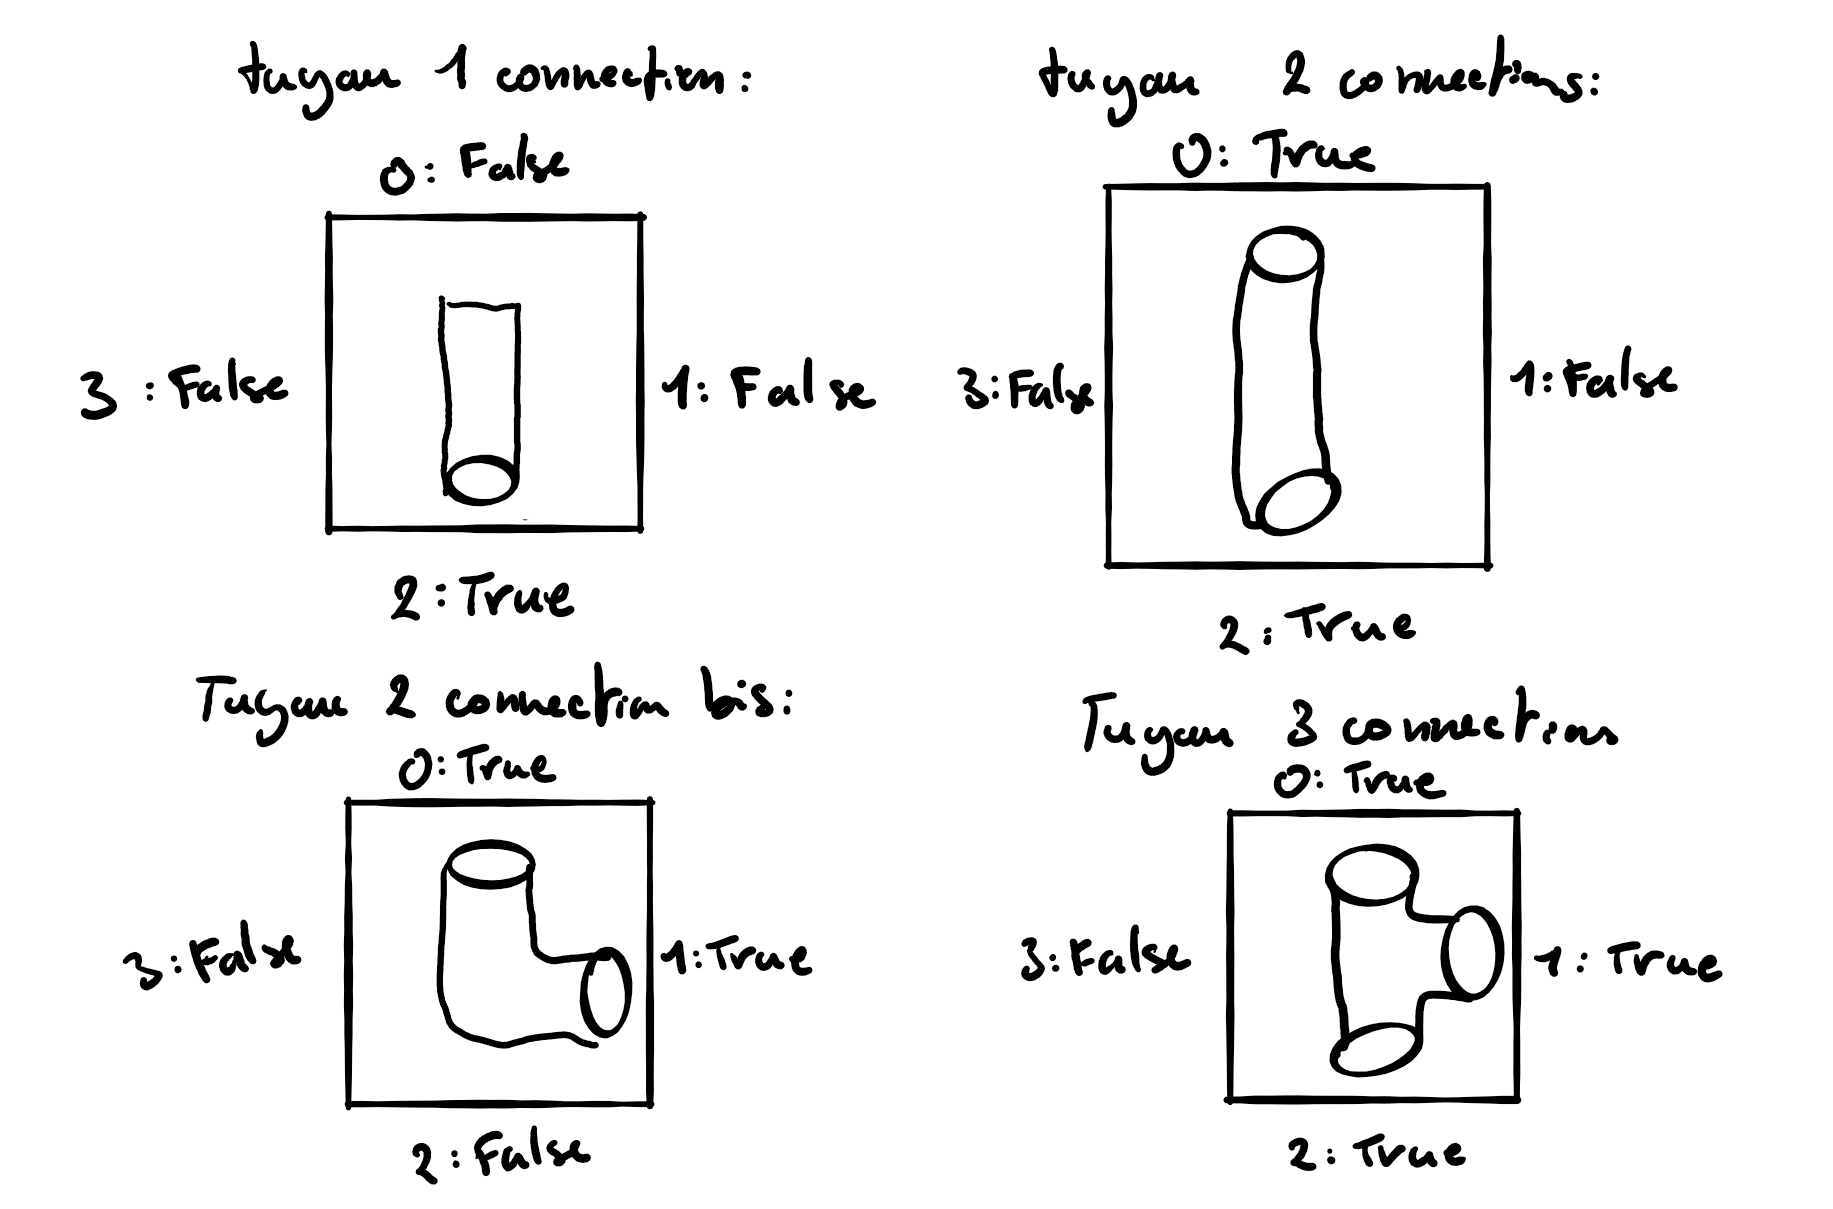 tuyau 1 connection:
0: False
3: False
1: False
2: True
tuyau 2 connections:
0: True
3: False
1: False
2: True
Tuyau 2 connection bis:
0: True
3: False
1: True
2: False
Tuyau 3 connections
0: True
3: False
1: True
2: True